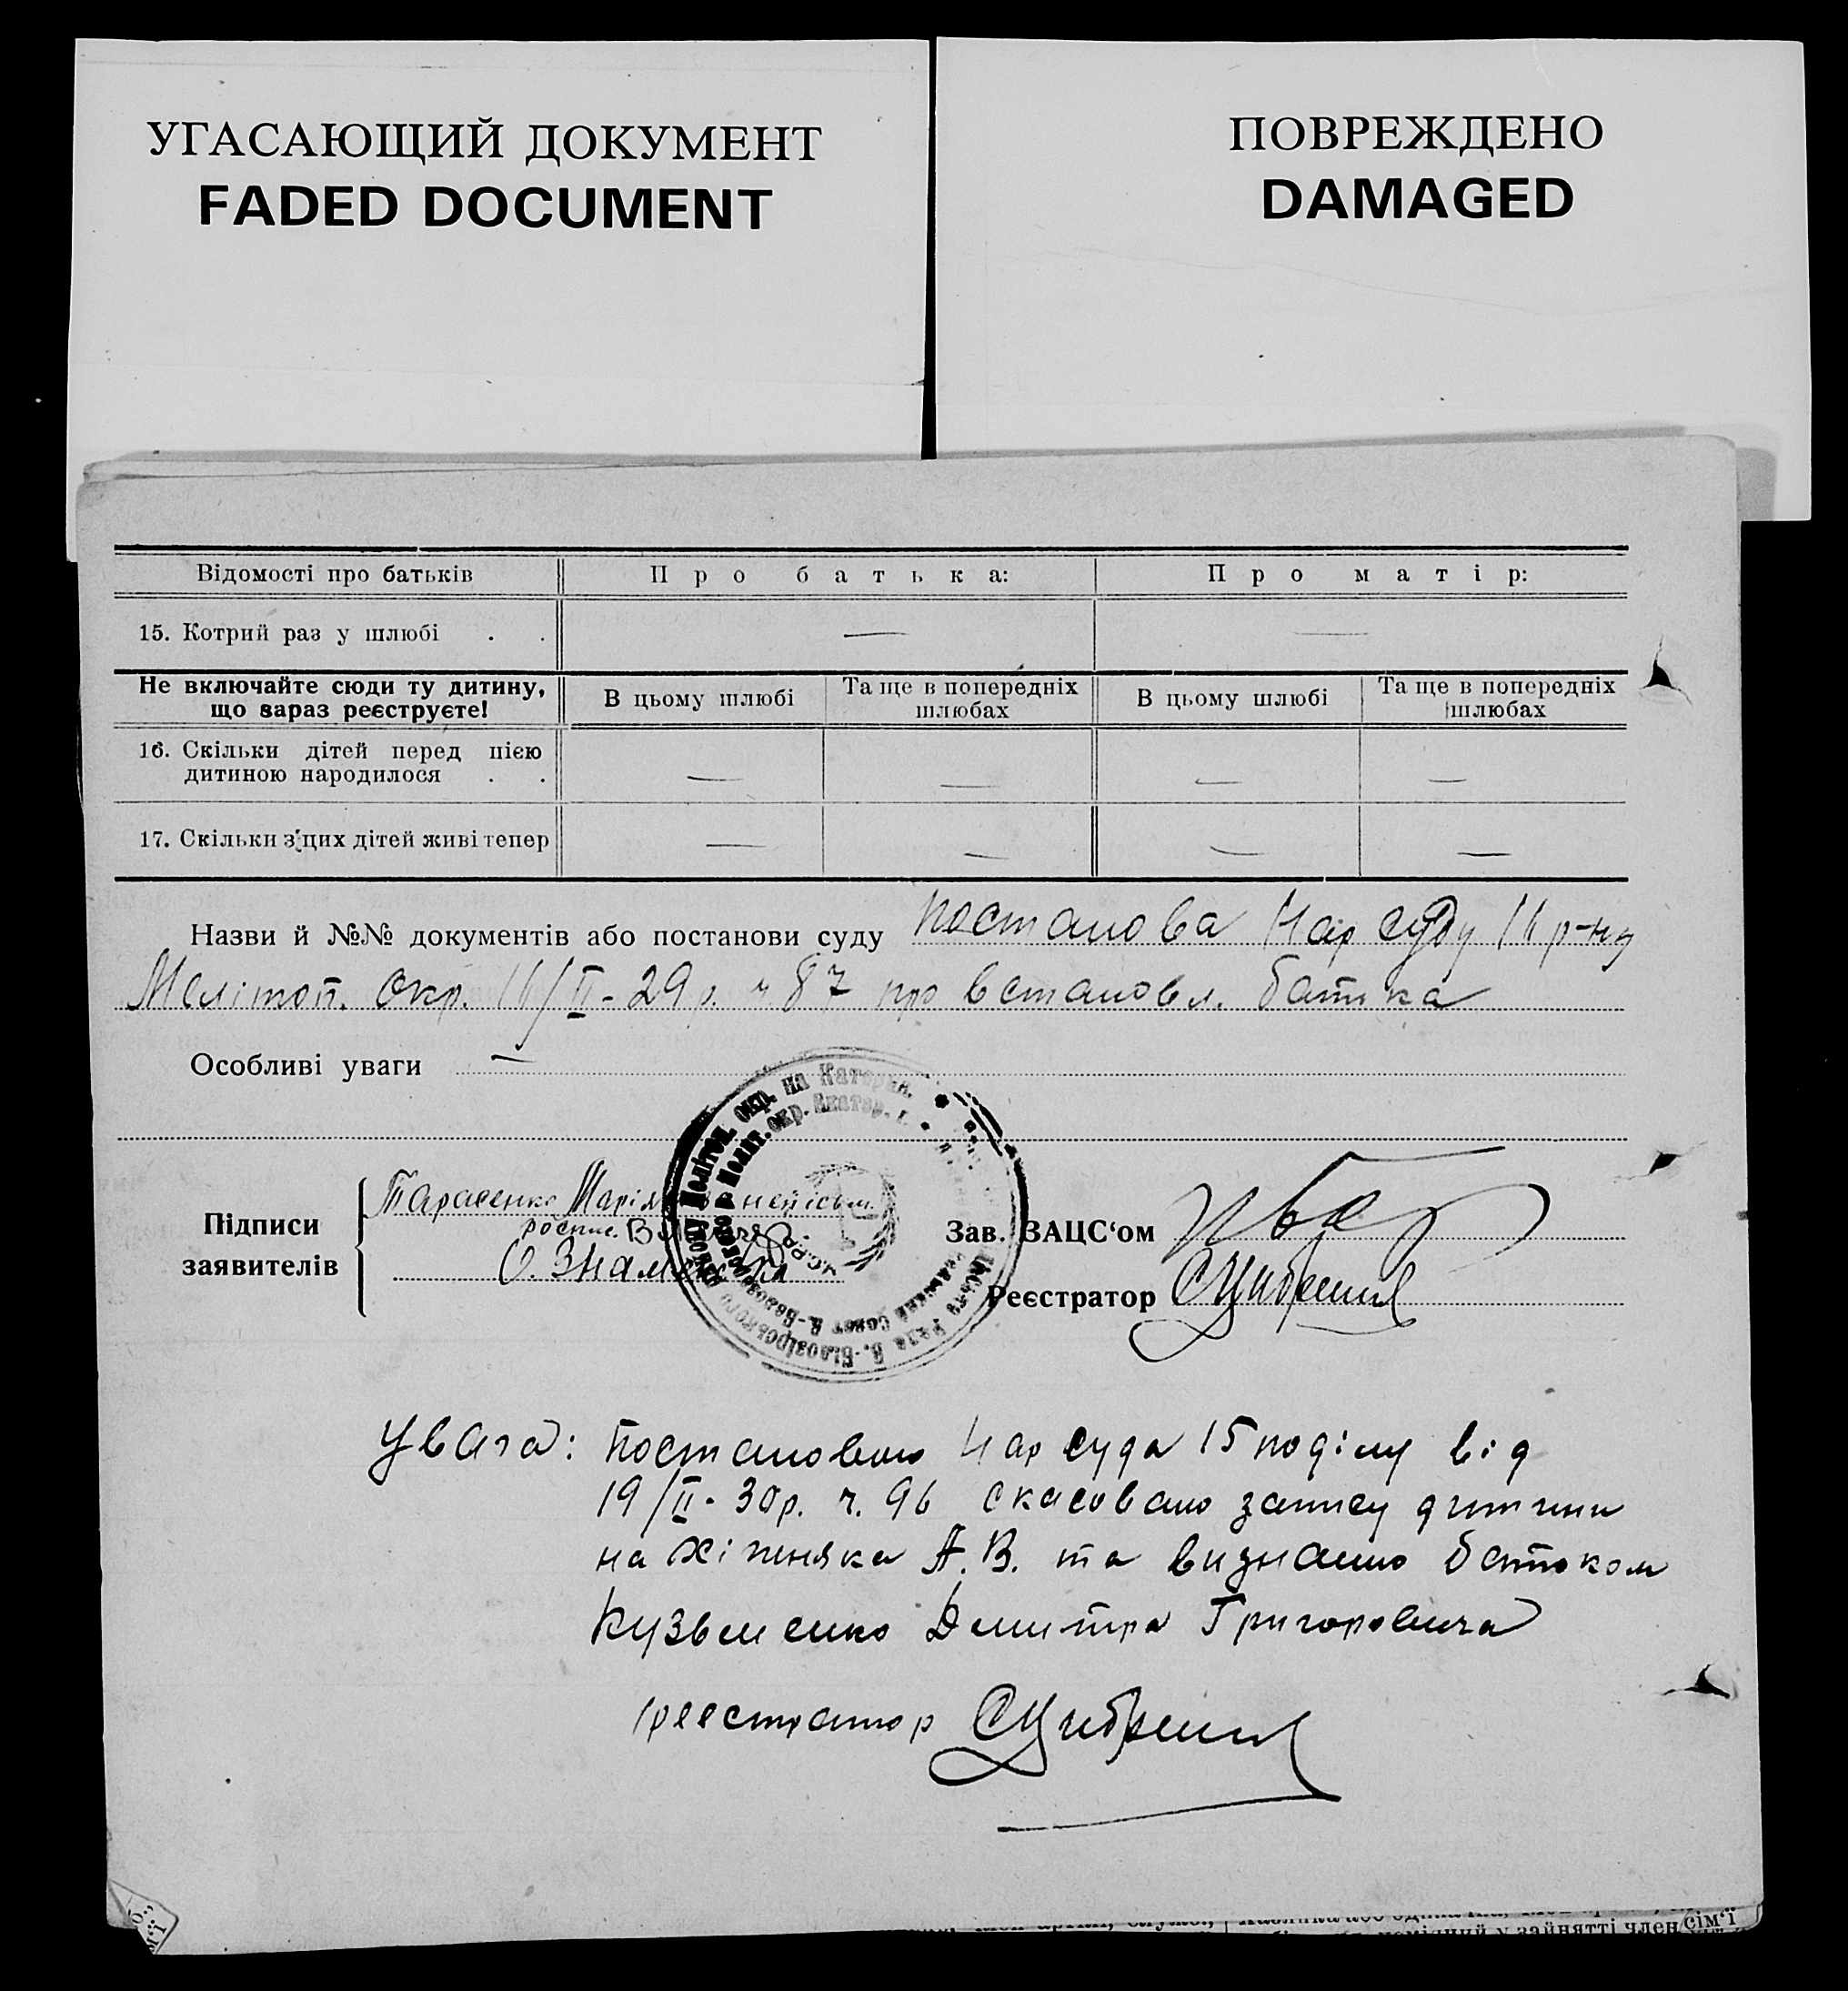 УГАСАЮЩИЙ ДОКУМЕНТ
FADED DOCUMENT
ПОВРЕЖДЕНО
DAMAGED
Відомості про батьків
Про батька:
Про матір:
15. Котрий раз у шлюбі . . — —
Не включайте сюди ту дитину,
що зараз реєструєте!
В цьому шлюбі
Та ще в попередніх
шлюбах
В цьому шлюбі
Та ще в попередніх
шлюбах
16. Скільки дітей перед цією
дитиною народилося . . — — — —
17. Скільки з цих дітей живі тепер — — — —
Назви й №№ документів або постанови суду постанова Нар суду 11 р-ну
Мелітоп. окр. 11/II-29 р. ч 87 про встановл. батька
Особливі уваги —
Підписи
заявителів
Тарасенко Марія неписьм.
роспис.
О. Знаменська
Зав. ЗАЦС‘ом
Реєстратор
Увага: Постановою Нар суда 15 поділу від
19/II-30р. ч. 96 скасовано запису дитини
на Хіпеняка А. В. та визнано батьком
Кузьменко Дмитра Григоровича
реестратор
у зайнятті член сім‘ї